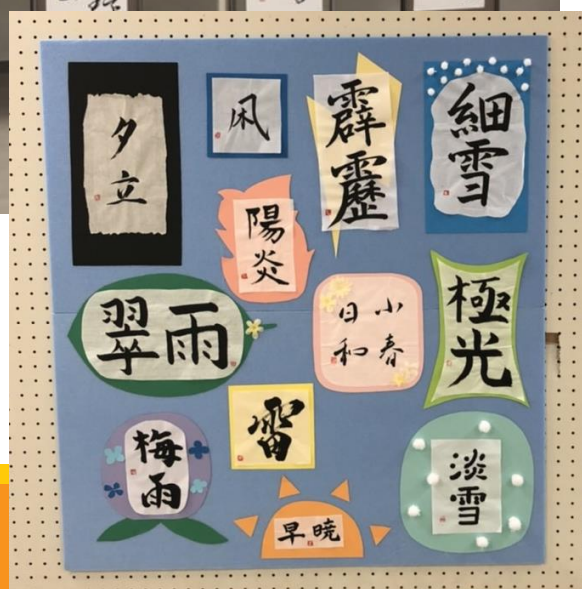 夕立
凩
霹靂
細雪
陽炎
翠雨
小春
日和
極光
雷
梅雨
早暁
淡雪